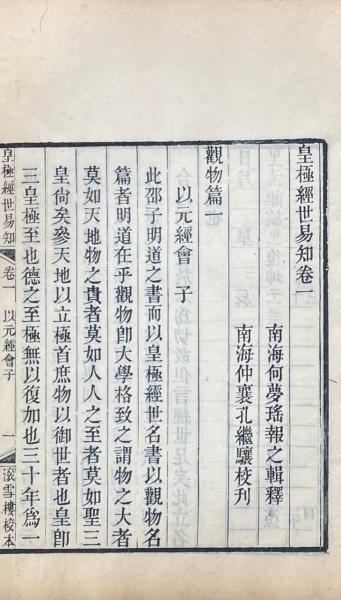 皇極經世易知卷一
南海何夢瑤報之輯釋
南海仲襄孔繼驤校刊
觀物篇
以元經會 子
此邵子明道之書而以皇極經世名書以觀物名
篇者明道在乎觀物卽大學格致之謂物之大者
莫如天地物之貴者莫如人人之至者莫如聖三
皇尙矣參天地以立極首庶物以御世者也皇卽
三皇極至也德之至極無以復加也三十年爲一
皇極經世易知 卷一 以元經會子 一 滾雪樓校本